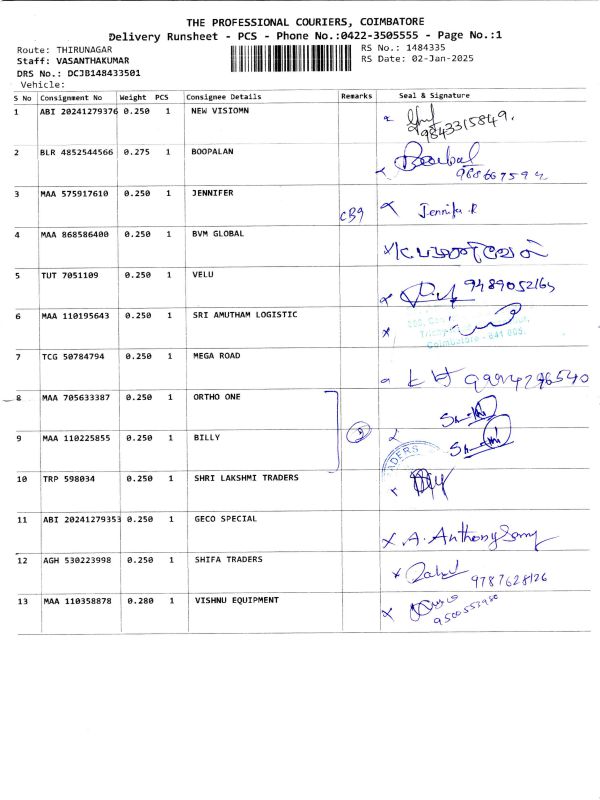 THE PROFESSIONAL COURIERS, COIMBATORE
Delivery Runsheet - PCS - Phone No.:0422-3505555 - Page No.:1
Route: THIRUNAGAR RS No.: 1484335
Staff: VASANTHAKUMAR RS Date: 02-Jan-2025
DRS No.: DCJB148433501
Vehicle:
S No Consignment No Weight PCS Consignee Details Remarks Seal & Signature
1 ABI 20241279376 0.250 1 NEW VISIOMN
9843315849.
2 BLR 4852544566 0.275 1 BOOPALAN
3 MAA 575917610 0.250 1 JENNIFER Jennifer R
4 MAA 868586400 0.250 1 BVM GLOBAL
5 TUT 7051109 0.250 1 VELU
6 MAA 110195643 0.250 1 SRI AMUTHAM LOGISTIC
Coimbatore - 641 005.
7 TCG 50784794 0.250 1 MEGA ROAD
8 MAA 705633387 0.250 1 ORTHO ONE
9 MAA 110225855 0.250 1 BILLY 2
10 TRP 598034 0.250 1 SHRI LAKSHMI TRADERS
11 ABI 20241279353 0.250 1 GECO SPECIAL A. Anthony Samy
12 AGH 530223998 0.250 1 SHIFA TRADERS
9787628126
13 MAA 110358878 0.280 1 VISHNU EQUIPMENT